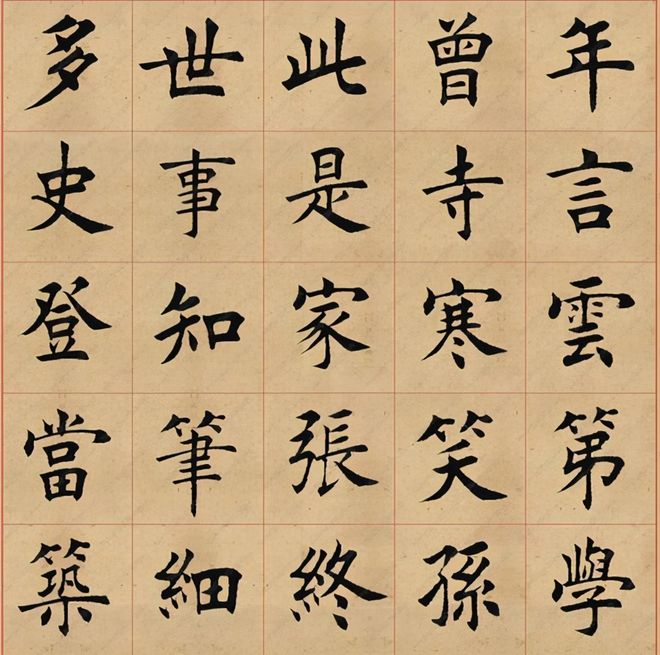 多世此曾年
史事是寺言
登知家寒雲
當筆張笑第
築細終孫學